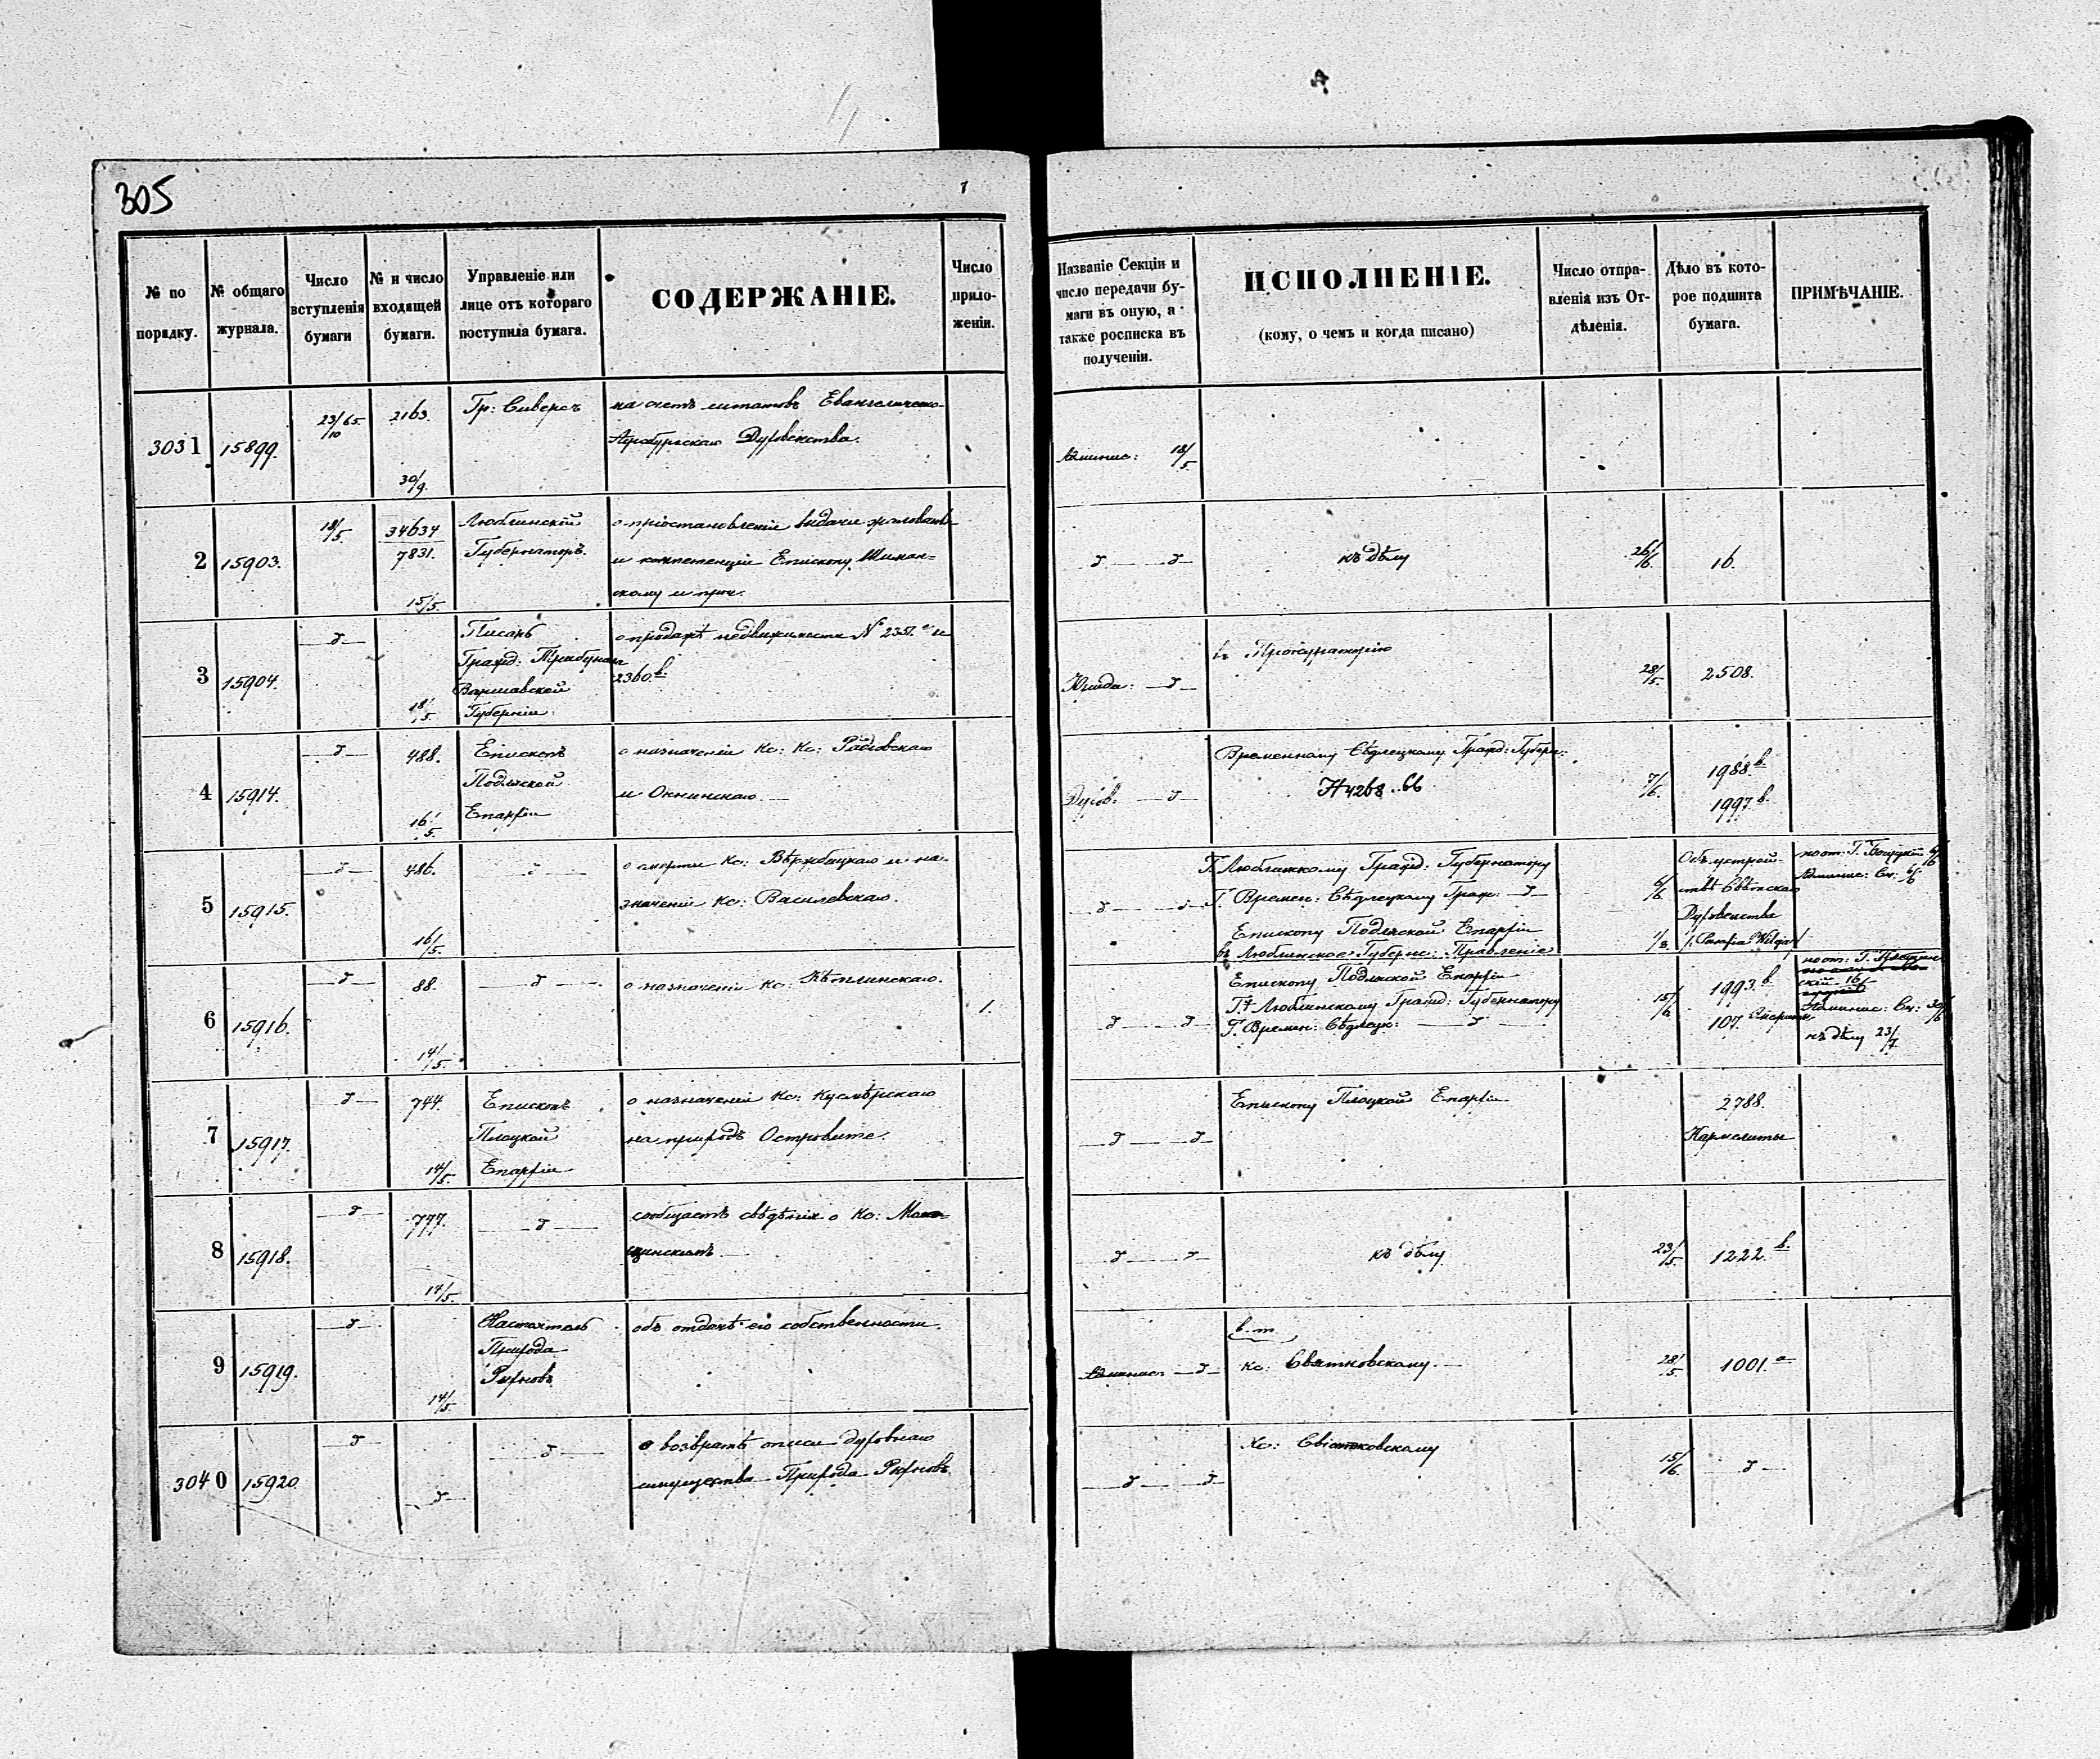 305
№ по порядку.
№ общаго журнала.
Число вступленія бумаги
№ и число входящей бумаги.
Управленіе или лице отъ котораго поступила бумага.
СОДЕРЖАНІЕ.
Число приложеніи.
Названіе Секціи и число передачи бумаги въ оную, а также росписка въ полученіи.
ИСПОЛНЕНІЕ.
(кому, о чемъ и когда писано)
Число отправленія изъ Отдѣленія.
Дѣло въ которое подшита бумага.
ПРИМѢЧАНІЕ.
3031 15899. 23/10 65 2163. 30/9.
Гр: Сиверсъ
на счетъ штатовъ Евангелическо-
Аугсбургскаго Духовенства.
Админис: 18/5
2 15903. 18/5. 34634 7831. 15/5.
Люблинскій
Губернаторъ.
о пріостановленіи выдачи жалованья
и компетенціи Епископу Шиман=
скому и проч.
д д
къ дѣлу
26/6. 16.
3 15904. д 18/5.
Писарь
Гражд: Трибунала
Варшавской
Губерніи
о продажѣ недвижимости № 2351.а и
2360.в.
Юрид: д
въ Прокураторію
28/5. 2508.
4 15914. д 488. 16/5.
Епископъ
Подляской
Епархіи
о назначеніи Кс: Кс: Радовскаго
и Окнинскаго.
Духов: д
Временному Сѣдлецкому Гражд: Губерн:
4268 66
7/6. 1988.в
1997.в.
5 15915. д 486. 16/5.
д
о смерти Кс: Вѣржбицкаго и на-
значеніи Кс: Василевскаго.
д д
Г. Люблинскому Гражд: Губернатору
Г. Времен: Сѣдлецкому Граж: д
Епископу Подляской Епархіи
въ Люблинское Губерн: Правленіе
6/6
1/8.
Объ устрой-
ствѣ Свѣтскаго
Духовенства
Админис: Сек: 6/6
6 15916. д 88. 14/5.
д
о назначеніи Кс: Кѣтлинскаго.
1.
д д
Епископу Подляской Епархіи
Г. Люблинскому Гражд: Губернатору
Г. Времен: Сѣдлецк: д
15/6
1993.в
107.
Админис: Сек: 30/6
къ дѣлу 23/7.
7 15917. д 744. 14/5.
Епископъ
Плоцкой
Епархіи
о назначеніи Кс: Кусмѣрскаго
на приходъ Островите.
д д
Епископу Плоцкой Епархіи
2788.
Кармелиты
8 15918. д 777. 14/5.
д
сообщаетъ свѣдѣнія о Кс: Мо
щинскомъ
д д
къ дѣлу
23/5. 1222.в.
9 15919. д 14/5.
Настоятель
Прихода
Рихновъ
объ отдачѣ его собственности.
Админис: д
в. т
Кс: Святковскому.
28/5. 1001.а
3040 15920. д д
д
о возвратѣ описи духовнаго
имущества Прихода Рихновъ
д д
Кс: Свіатковскому
15/6. д